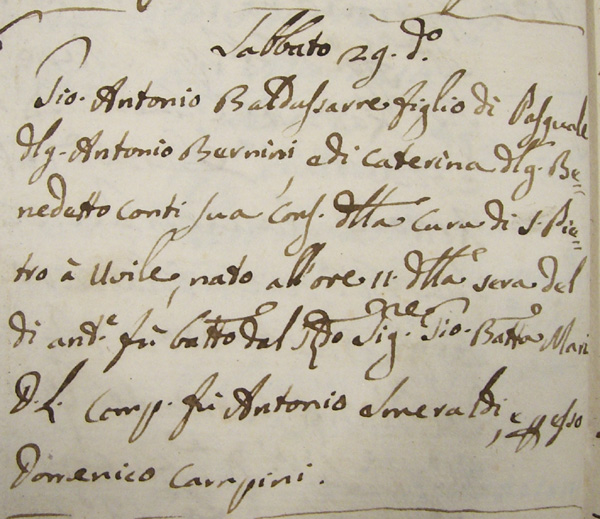 Sabbato 29. do.
Gio. Antonio Baldassarre figlio di Pasquale
dlg. Antonio Bernini, e di Caterina dlg. Be=
nedetto Conti sua Cons. dlla Cura di S. Pie=
tro à Uuile, nato all'ore 11. dlla sera del
di ant.e fù batto dal Sig.re Gio. Batta Mari
D. L. Comp. fù Antonio Smeraldi, e
Domenico Campini.